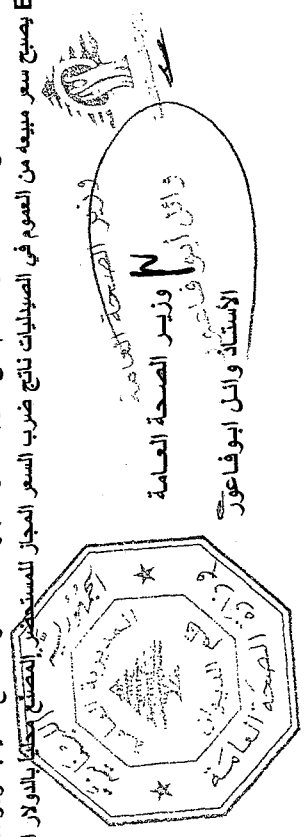 يصبح سعر مبيعه من العموم في الصيدليات ناتج ضرب السعر المجاز للمستحضر المصنع محلياً بالدولار
وزير الصحة العامة
وائل أبو فاعور
وزير الصحة العامة
الأستاذ وائل ابو فاعور
الجمهورية اللبنانية
وزارة الصحة العامة
المديرية العامة
الديوان